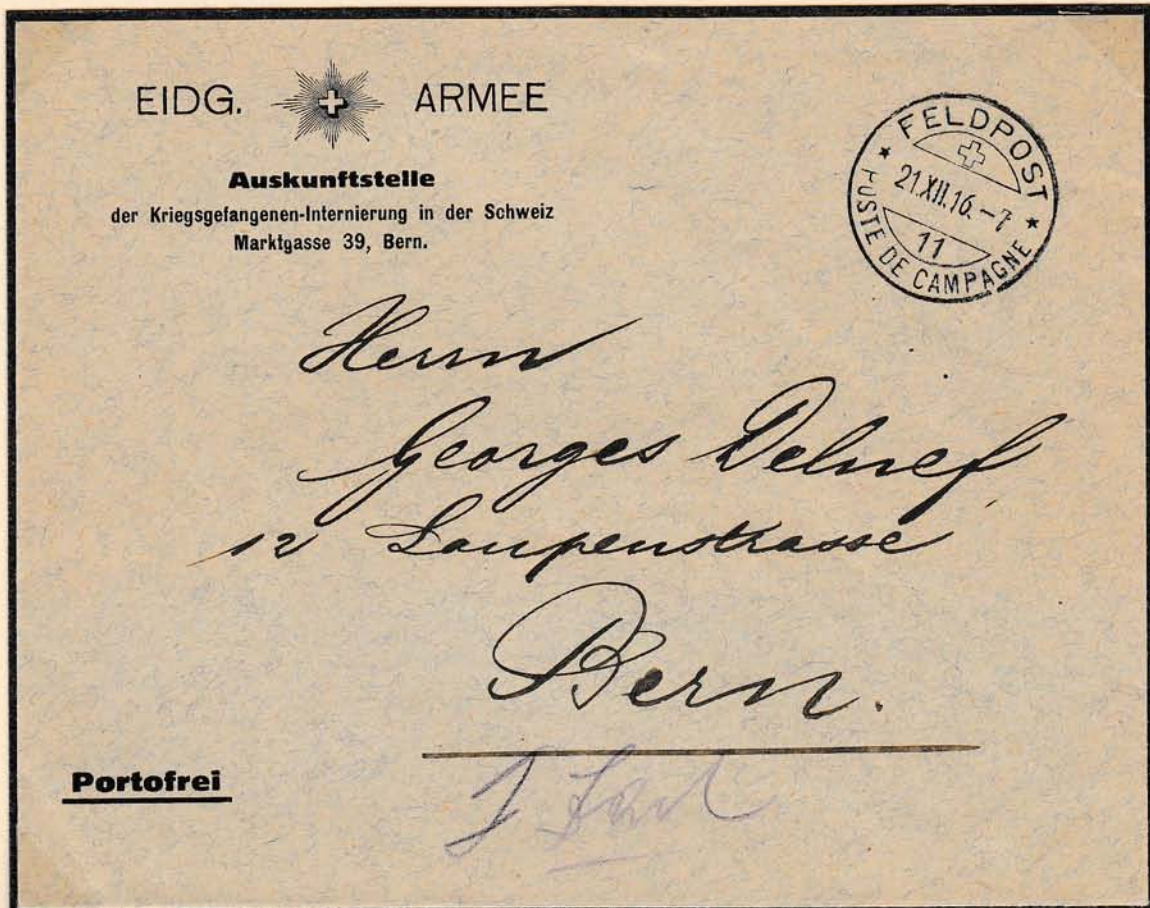 EIDG. ARMEE
Auskunftstelle
der Kriegsgefangenen-Internierung in der Schweiz
Marktgasse 39, Bern.
FELDPOST
21.XII.16.-7
11
POSTE DE CAMPAGNE
Herrn
Georges
12 Laupenstrasse
Bern.
Portofrei